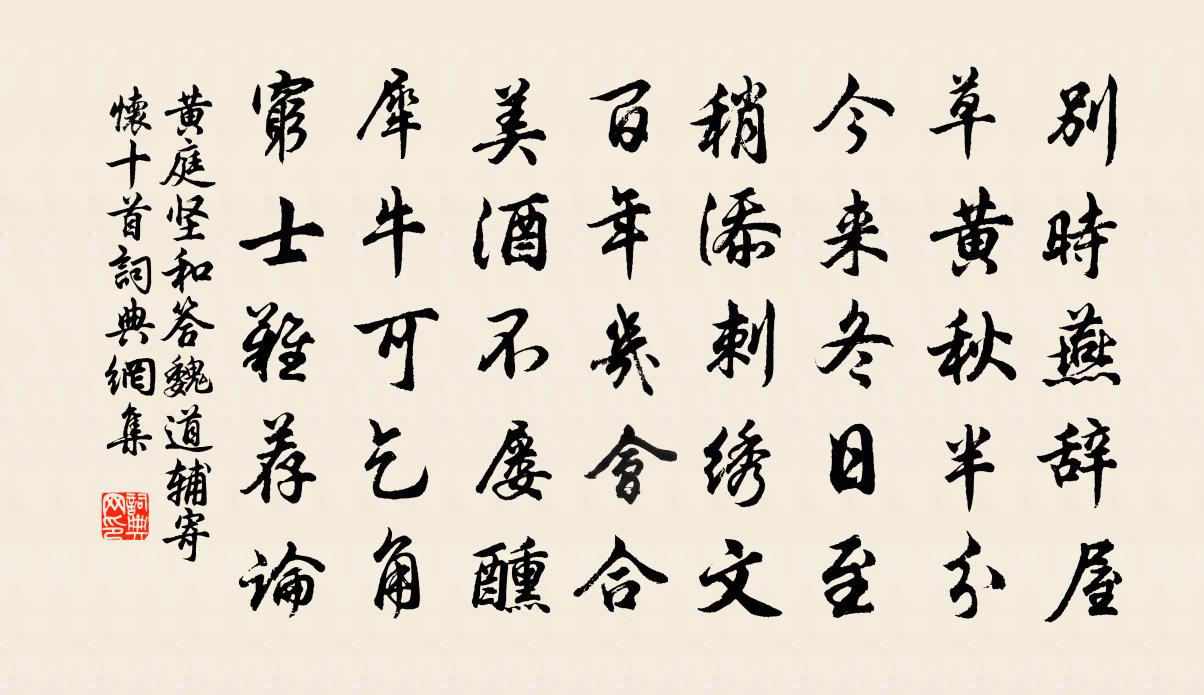 別時燕辞屋
草黄秋半分
今来冬日至
稍添刺绣文
百年幾會合
美酒不屡醺
犀牛可乞角
窮士難荐論
黄庭坚和答魏道辅寄
懷十首詞典網集
詞典
网印